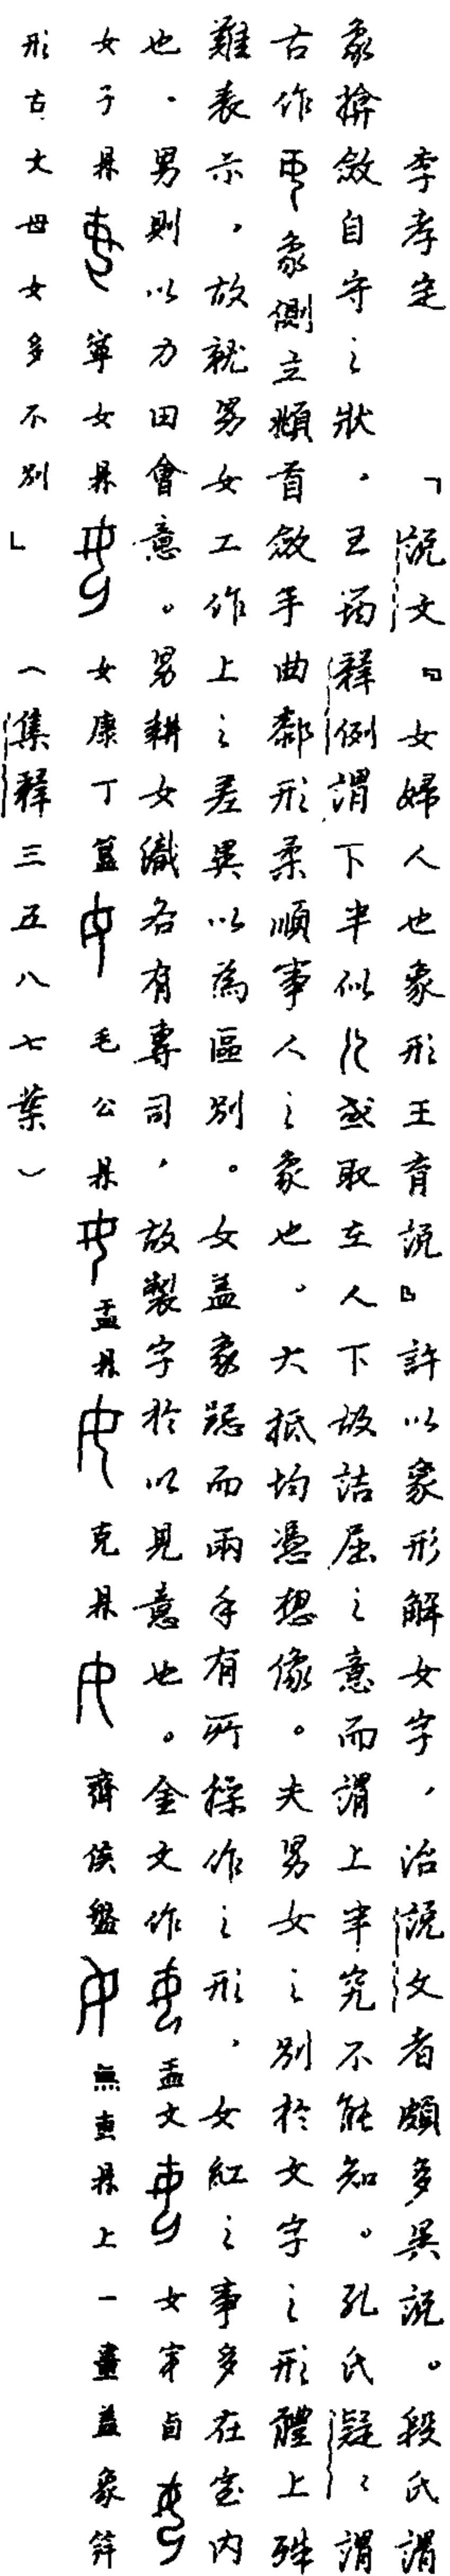 李孝定 「說文『女婦人也象形王育說』許以象形解女字，治說文者頗多異說。段氏謂
象揜斂自守之狀，王筠釋例謂下半似𠃉或取在人下故詰屈之意而謂上半究不能知。孔氏疑疑謂
古作象側立頫首斂手曲厀形柔順事人之象也。大抵均憑想像。夫男女之別於文字之形體上殊
難表示，故就男女工作上之差異以為區別。女蓋象跽而兩手有所操作之形，女紅之事多在室內
也，男則以力田會意。男耕女織各有專司，故製字於以見意也。金文作盂文女𡨦卣
女子鼎𡨦女鼎女康丁簋毛公鼎盂鼎克鼎齊侯盤無叀鼎上一畫蓋象笄
形古文母女多不別」（集釋三五八七葉）